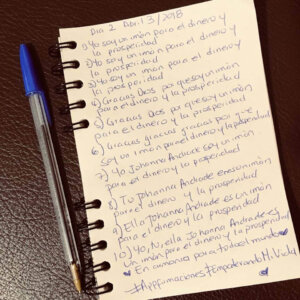 Día 2 Abril 3/2018
1) Yo soy un imán para el dinero y
la prosperidad
2) Yo soy un imán para el dinero y
la prosperidad
3) Yo soy un imán para el dinero y
la prosperidad
4) Gracias Dios por que soy un imán
para el dinero y la prosperidad
5) Gracias Dios por que soy un imán
para el dinero y la prosperidad
6) Gracias gracias gracias por que
soy un imán para el dinero y la prosperidad
7) Yo Johanna Andrade soy un imán
para el dinero y la prosperidad
8) Tu Johanna Andrade eres un imán
para el dinero y la prosperidad
9) Ella Johanna Andrade es un imán
para el dinero y la prosperidad
10) Yo, tu, ella Johanna Andrade es
un imán para el dinero y la prosperidad
En armonía para todo el mundo
#Appfirmaciones #EmpoderandoMiVida